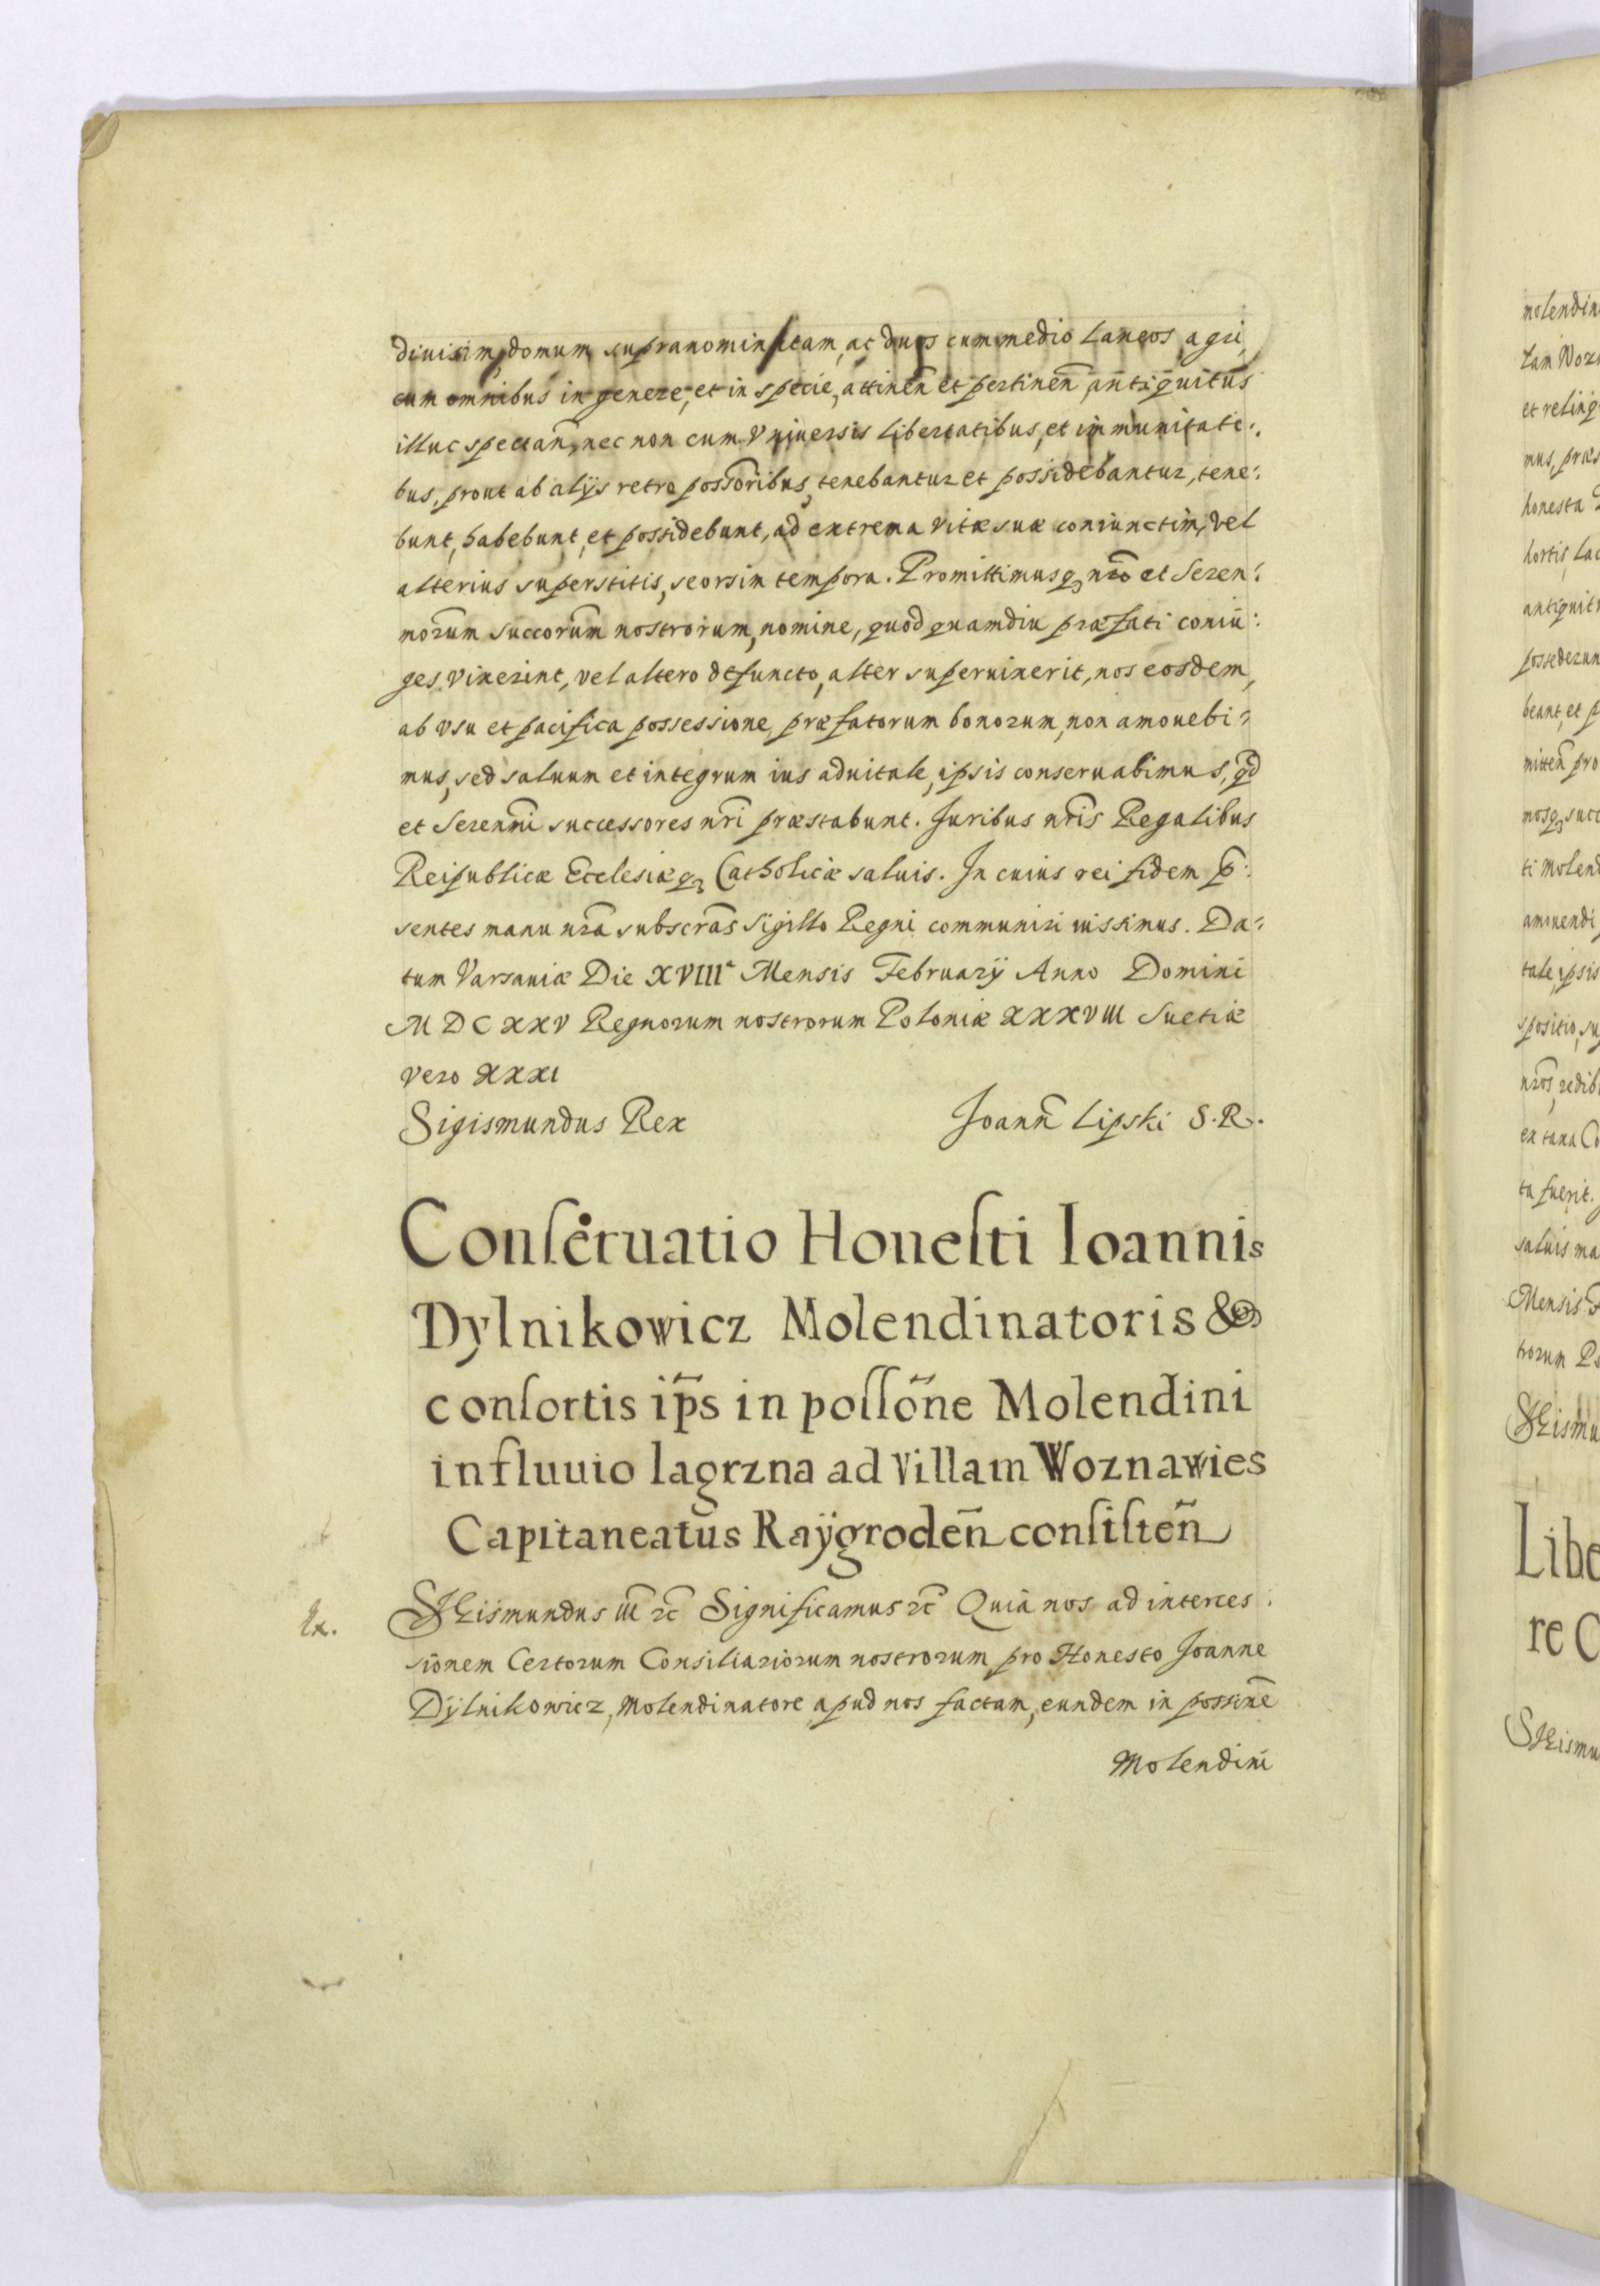 diuisim, domum supranominatam, ac duos cum medio Laneos agri,
cum omnibus in genere, et in specie, attineñ et pertineñ antiquitus
illuc spectañ, nec non cum Vniuersis libertatibus, et immunitati:
bus, prout ab alijs retro possoribus, tenebantur et possidebantur, tene:
bunt, habebunt, et possidebunt, ad extrema vitæ suæ coniunctim, vel
alterius superstitis, seorsim tempora. Promittimusq₃ nr̃o et Seren:
norum succorum nostrorum, nomine, quod quamdiu præfati coniu:
ges vixerint, vel altero defuncto, alter superuixerit, nos eosdem,
ab vsu et pacifica possessione, præfatorum bonorum, non amouebi:
mus, sed saluum et integrum ius aduitale, ipsis conseruabimus, qd̃
et Serenñi successores nr̃i præstabunt. Juribus nr̃is Regalibus
Reipublicæ Ecclesiæq₃ Catholicæ saluis. In cuius rei fidem p̃:
sentes manu nr̃a subscr̃as Sigillo Regni communiri iussimus. Da:
tum Varsauiæ Die XVIIIª Mensis Februarij Anno Domini
MDCXXV Regnorum nostrorum Poloniæ XXXVIII Suetiæ
vero XXXI
Sigismundus Rex Joanñ Lipski S.R.
Conſeruatio Honeſti Ioannis
Dylnikowicz Molendinatoris &
conſortis ip̃s in poſſõne Molendini
in fluuio Iagrzna ad Villam Woznawies
Capitaneatus Raÿgrodeñ conſiſteñ
Ex. Sigismundus III ꝛc̃ Significamus ꝛc̃ Quia nos ad interces:
sionem Certorum Consiliariorum nostrorum, pro Honesto Joanne
Dÿlnikowicz, Molendinatore apud nos factam, eundem in possinẽ
Molendini
molendin
et relinq
mus, præs
honesta
hortis, lac
antiquit
possederun
beant, et p
mitteñ pro
mosq₃ succ
ti Molend
amouendi
tale, ipsis
spositio, su
nr̃os, redib
ex taxa Co
ta fuerit.
saluis ma
Mensis F
trorum Po
Libe
re C